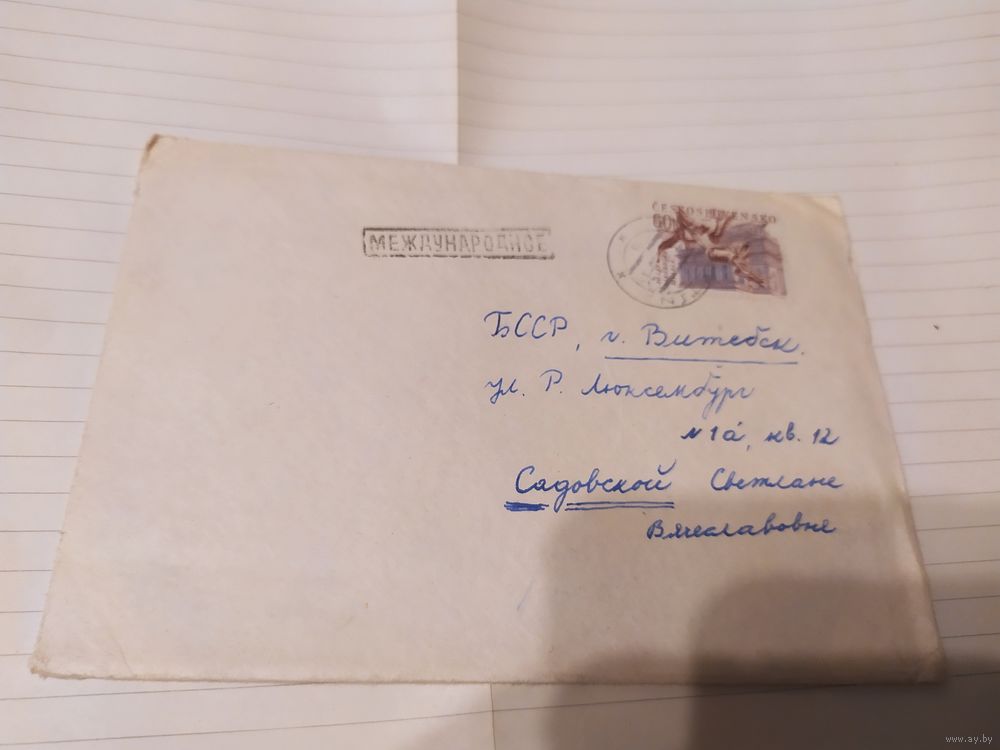 ČESKOSLOVENSKO
60h
МЕЖДУНАРОДНОЕ
БССР, г. Витебск.
ул. Р. Люксембург
№ 1а, кв. 12
Садовской Светлане
Вячеславовне
www.ay.by